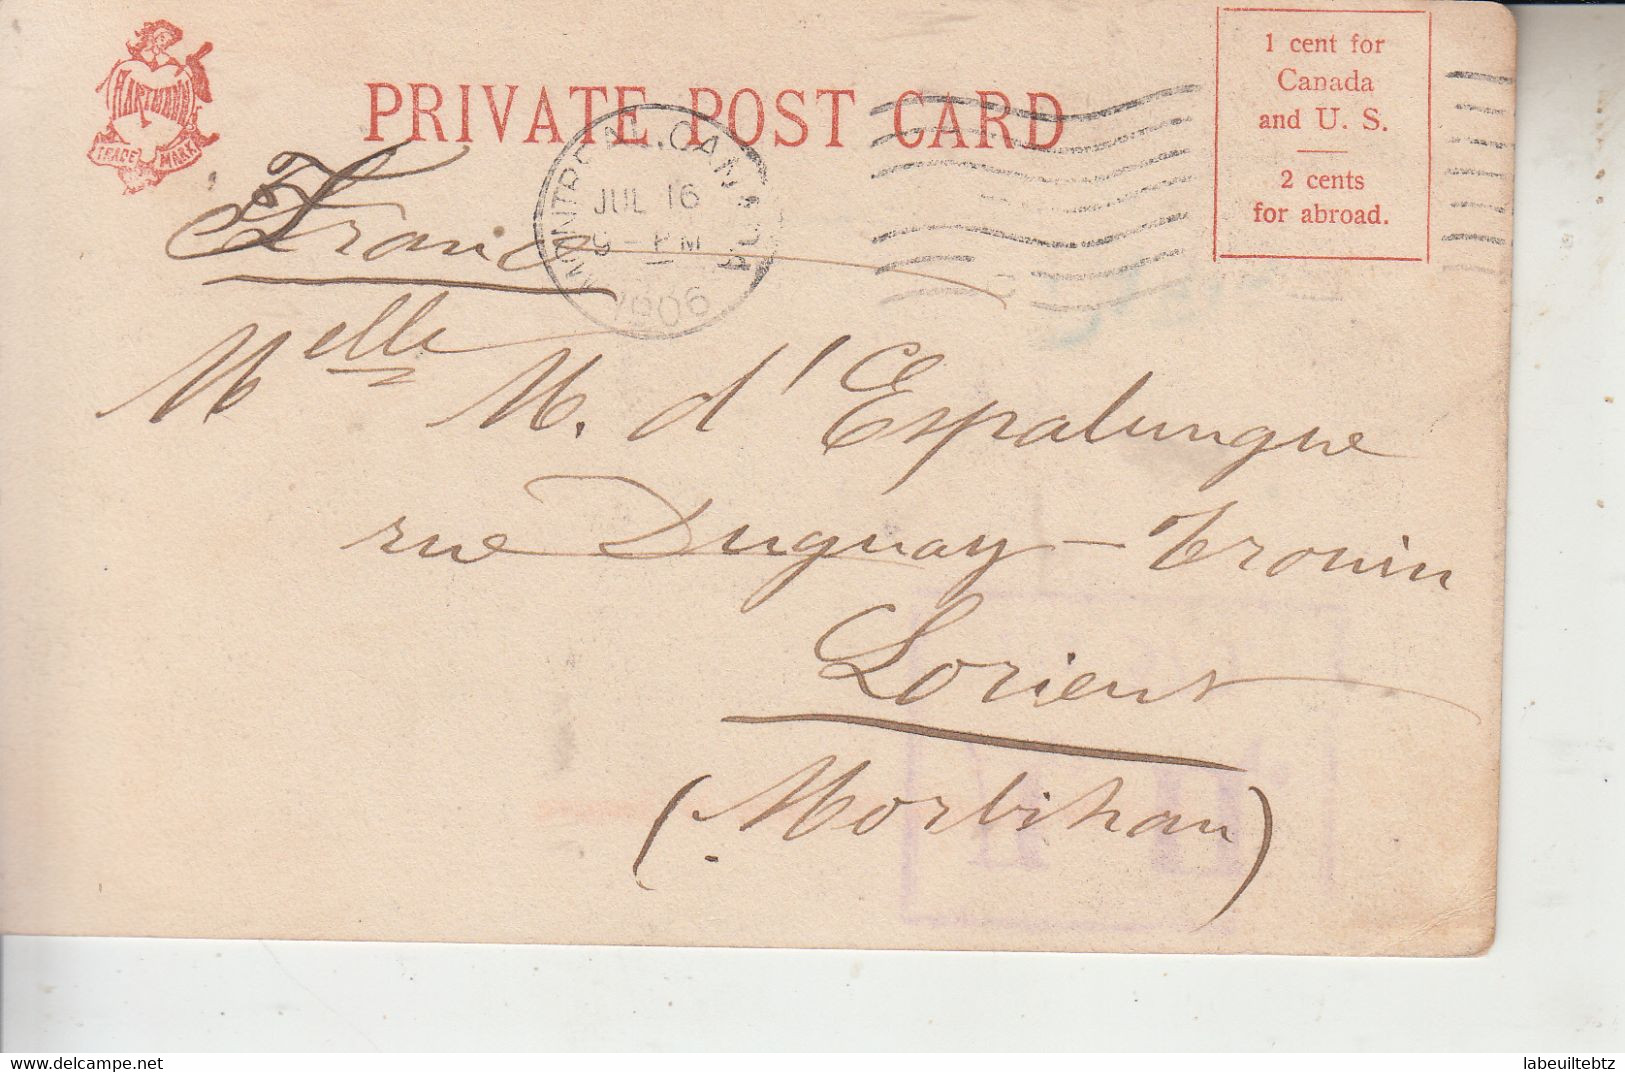 HARTMANN
TRADE MARK
PRIVATE POST CARD
1 cent for
Canada
and U. S.
2 cents
for abroad.
MONTREAL. CAN
JUL 16
9 - PM
1906
France
Melle M. d'Espalungue
rue Duguay-Trouin
Lorient
(Morbihan)
labeuiltebtz